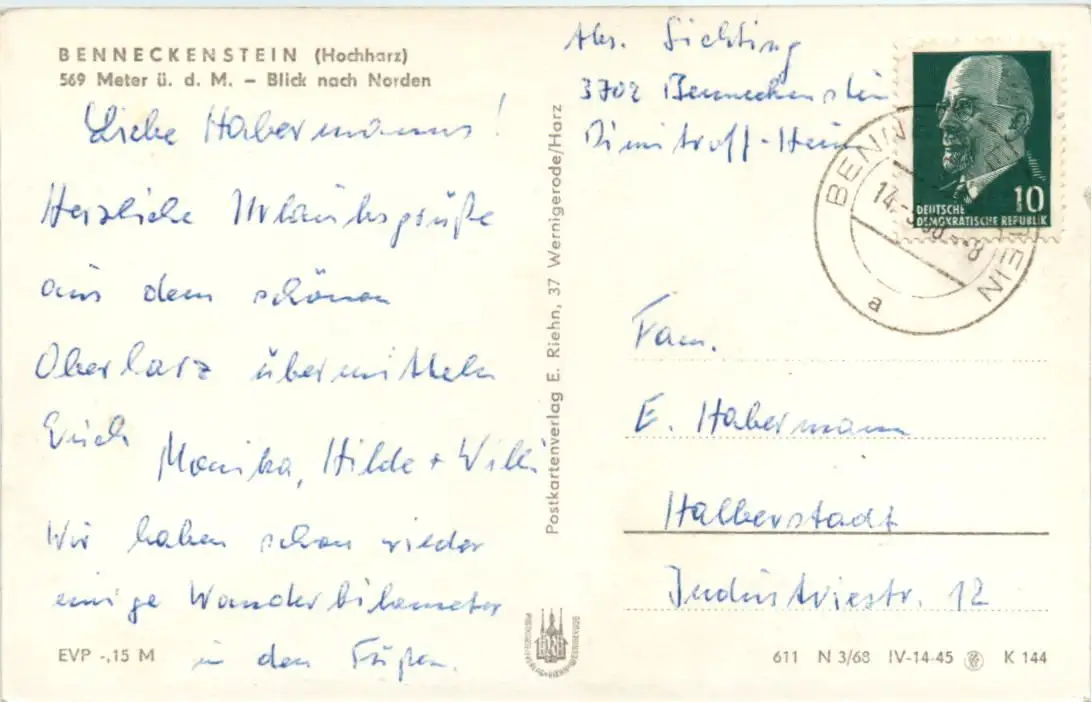 BENNECKENSTEIN (Hochharz)
569 Meter ü. d. M. – Blick nach Norden
Liebe Habermanns!
Herzliche Urlaubsgrüße
aus dem schönen
Oberharz übermitteln
Euch
Monika, Hilde + Willi
Wir haben schon wieder
einige Wanderkilometer
in den Füßen.
EVP -,15 M
Postkartenverlag E. Riehn, 37 Wernigerode/Harz
Abs. Sichting
3702 Benneckenstein
Dimitroff-Heim
10
DEUTSCHE
DEMOKRATISCHE REPUBLIK
BENNECKENSTEIN
14.
a
Fam.
E. Habermann
Halberstadt
Industriestr. 12
611 N 3/68 IV-14-45 K 144